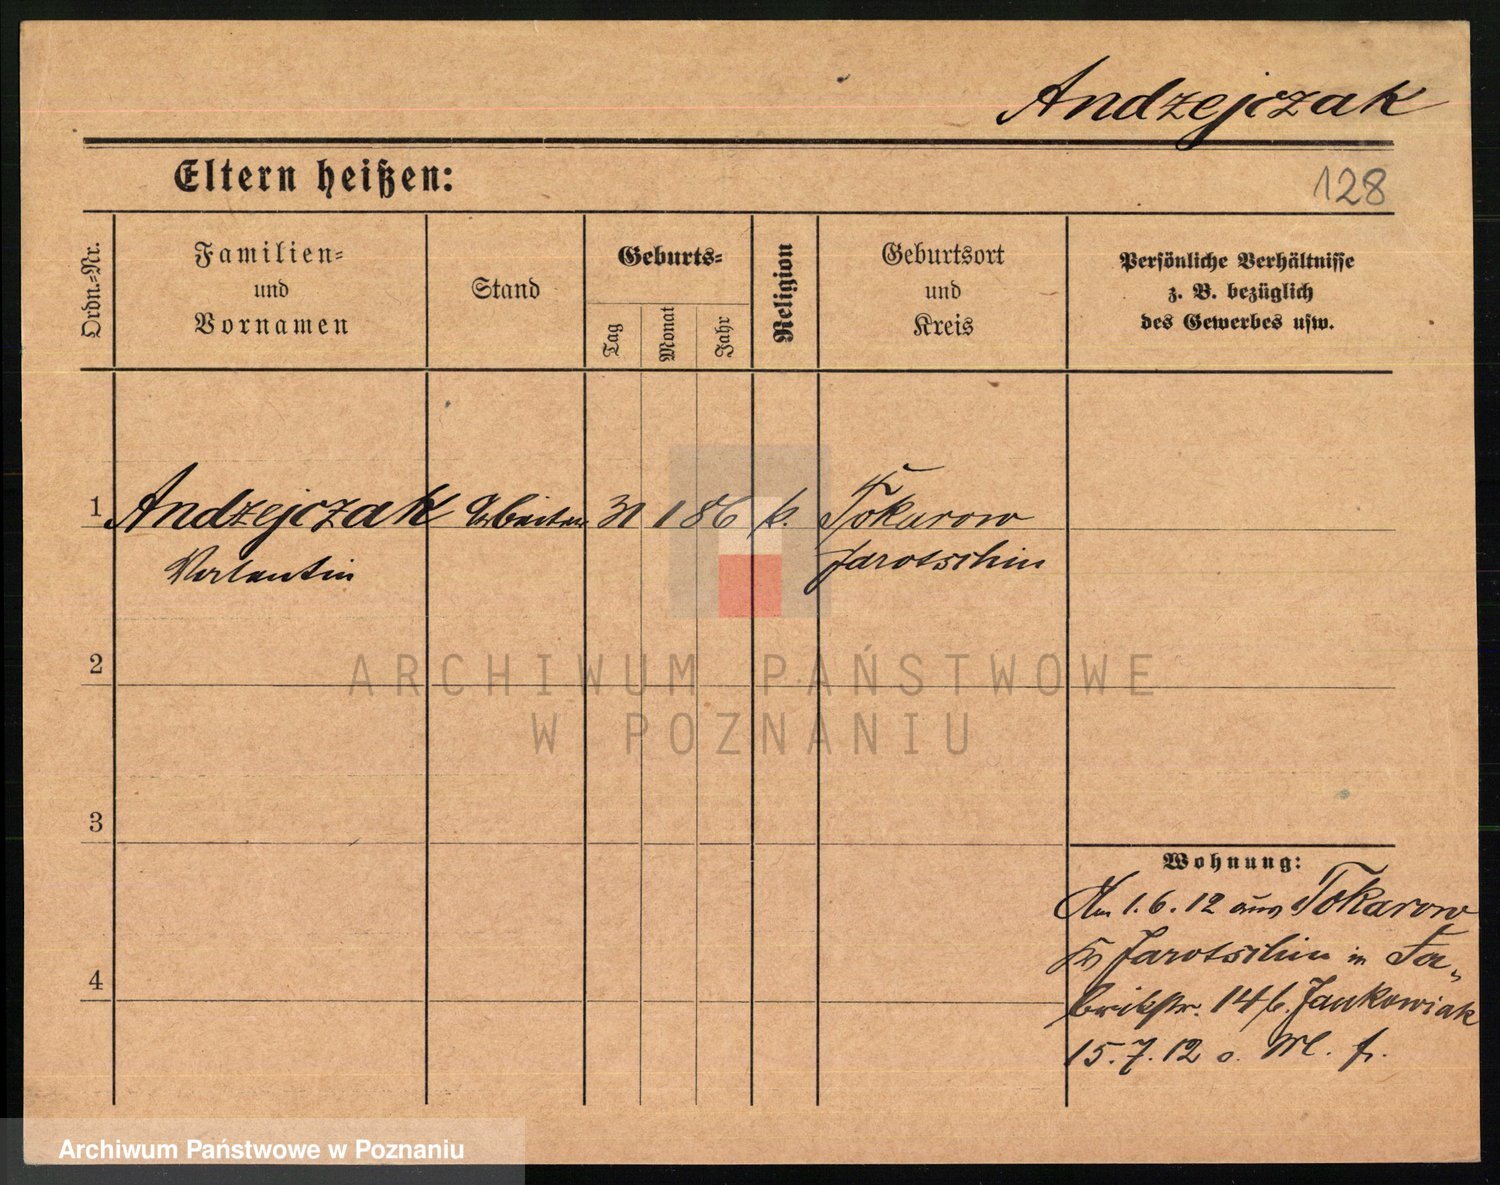 Andzejczak
Eltern heißen:
128
Ordn.-Nr.
Familien-
und
Vornamen
Stand
Geburts-
Tag
Monat
Jahr
Religion
Geburtsort
und
Kreis
Persönliche Verhältnisse
z. B. bezüglich
des Gewerbes usw.
1 Andzejczak Arbeiter 31 1 86 k. Tokarow
Valentin Jarotschin
2
3
4
Wohnung:
Am 1.6.12 aus Tokarow
Kr Jarotschin in Fa-
brikstr. 14 b. Jankowiak
15.7.12 o. M. f.
ARCHIWUM PAŃSTWOWE
W POZNANIU
Archiwum Państwowe w Poznaniu